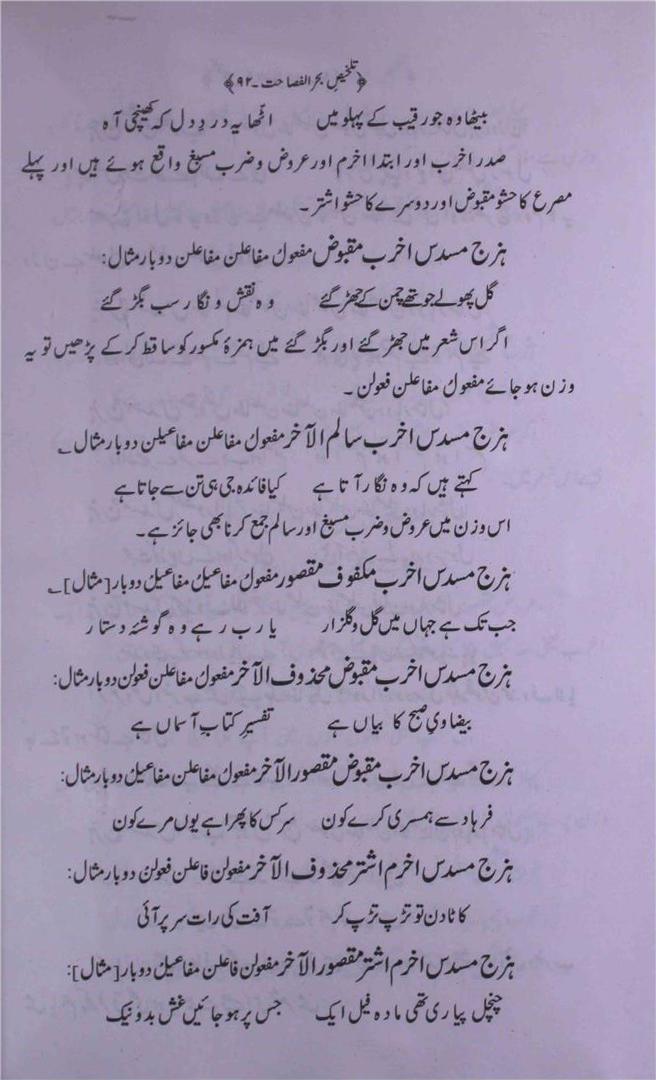 ﴿تلخیصِ بحر الفصاحت۔۹۲﴾
بیٹھا وہ جو رقیب کے پہلو میں اٹھا یہ دردِ دل کہ کھینچی آہ
صدر اخرب اور ابتدا اخرم اور عروض و ضرب مسبغ واقع ہوئے ہیں اور پہلے
مصرع کا حشو مقبوض اور دوسرے کا حشو اشتر۔
ہزج مسدس اخرب مقبوض مفعول مفاعلن مفاعلن دوبار مثال:
گل پھولے جو تھے چمن کے جھڑ گئے وہ نقش و نگار سب بگڑ گئے
اگر اس شعر میں جھڑ گئے اور بگڑ گئے میں ہمزۂ مکسور کو ساقط کر کے پڑھیں تو یہ
وزن ہو جائے مفعول مفاعلن فعولن۔
ہزج مسدس اخرب سالم الآخر مفعول مفاعلن مفاعیلن دوبار مثال؂
کہتے ہیں کہ وہ نگار آتا ہے کیا فائدہ جی ہی تن سے جاتا ہے
اس وزن میں عروض و ضرب مسبغ اور سالم جمع کرنا بھی جائز ہے۔
ہزج مسدس اخرب مکفوف مقصور مفعول مفاعیل مفاعیل دوبار [مثال]؂
جب تک ہے جہاں میں گل و گلزار یارب رہے وہ گوشۂ دستار
ہزج مسدس اخرب مقبوض محذوف الآخر مفعول مفاعلن فعولن دوبار مثال:
بیضاویِ صبح کا بیاں ہے تفسیرِ کتابِ آسماں ہے
ہزج مسدس اخرب مقبوض مقصور الآخر مفعول مفاعلن مفاعیل دوبار مثال:
فرہاد سے ہمسری کرے کون سر کس کا پھرا ہے یوں مرے کون
ہزج مسدس اخرم اشتر محذوف الآخر مفعولن فاعلن فعولن دوبار مثال:
کاٹا دن تو تڑپ تڑپ کر آفت کی رات سر پر آئی
ہزج مسدس اخرم اشتر مقصور الآخر مفعولن فاعلن مفاعیل دوبار [مثال]:
چنچل پیاری تھی مادہ فیل ایک جس پر ہو جائیں غش بد و نیک